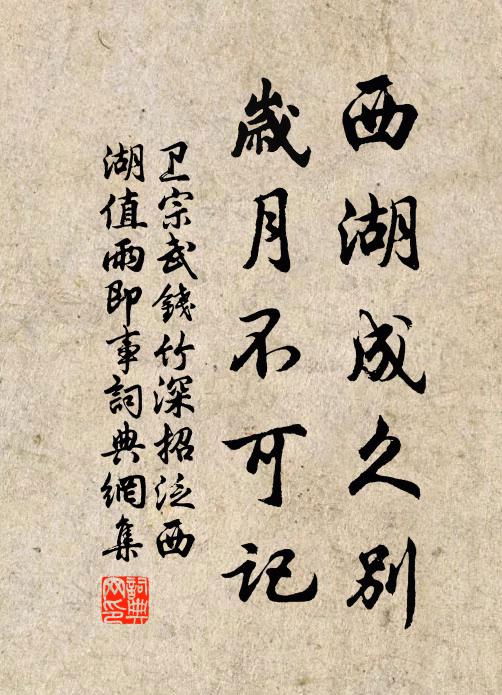 西湖成久别
歲月不可記
卫宗武錢竹深招泛西
湖值雨即事詞典網集
詞典网印